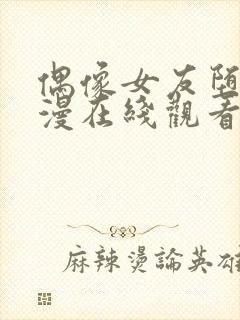 偶像女友堕
漫在綫觀看
麻辣燙論英雄